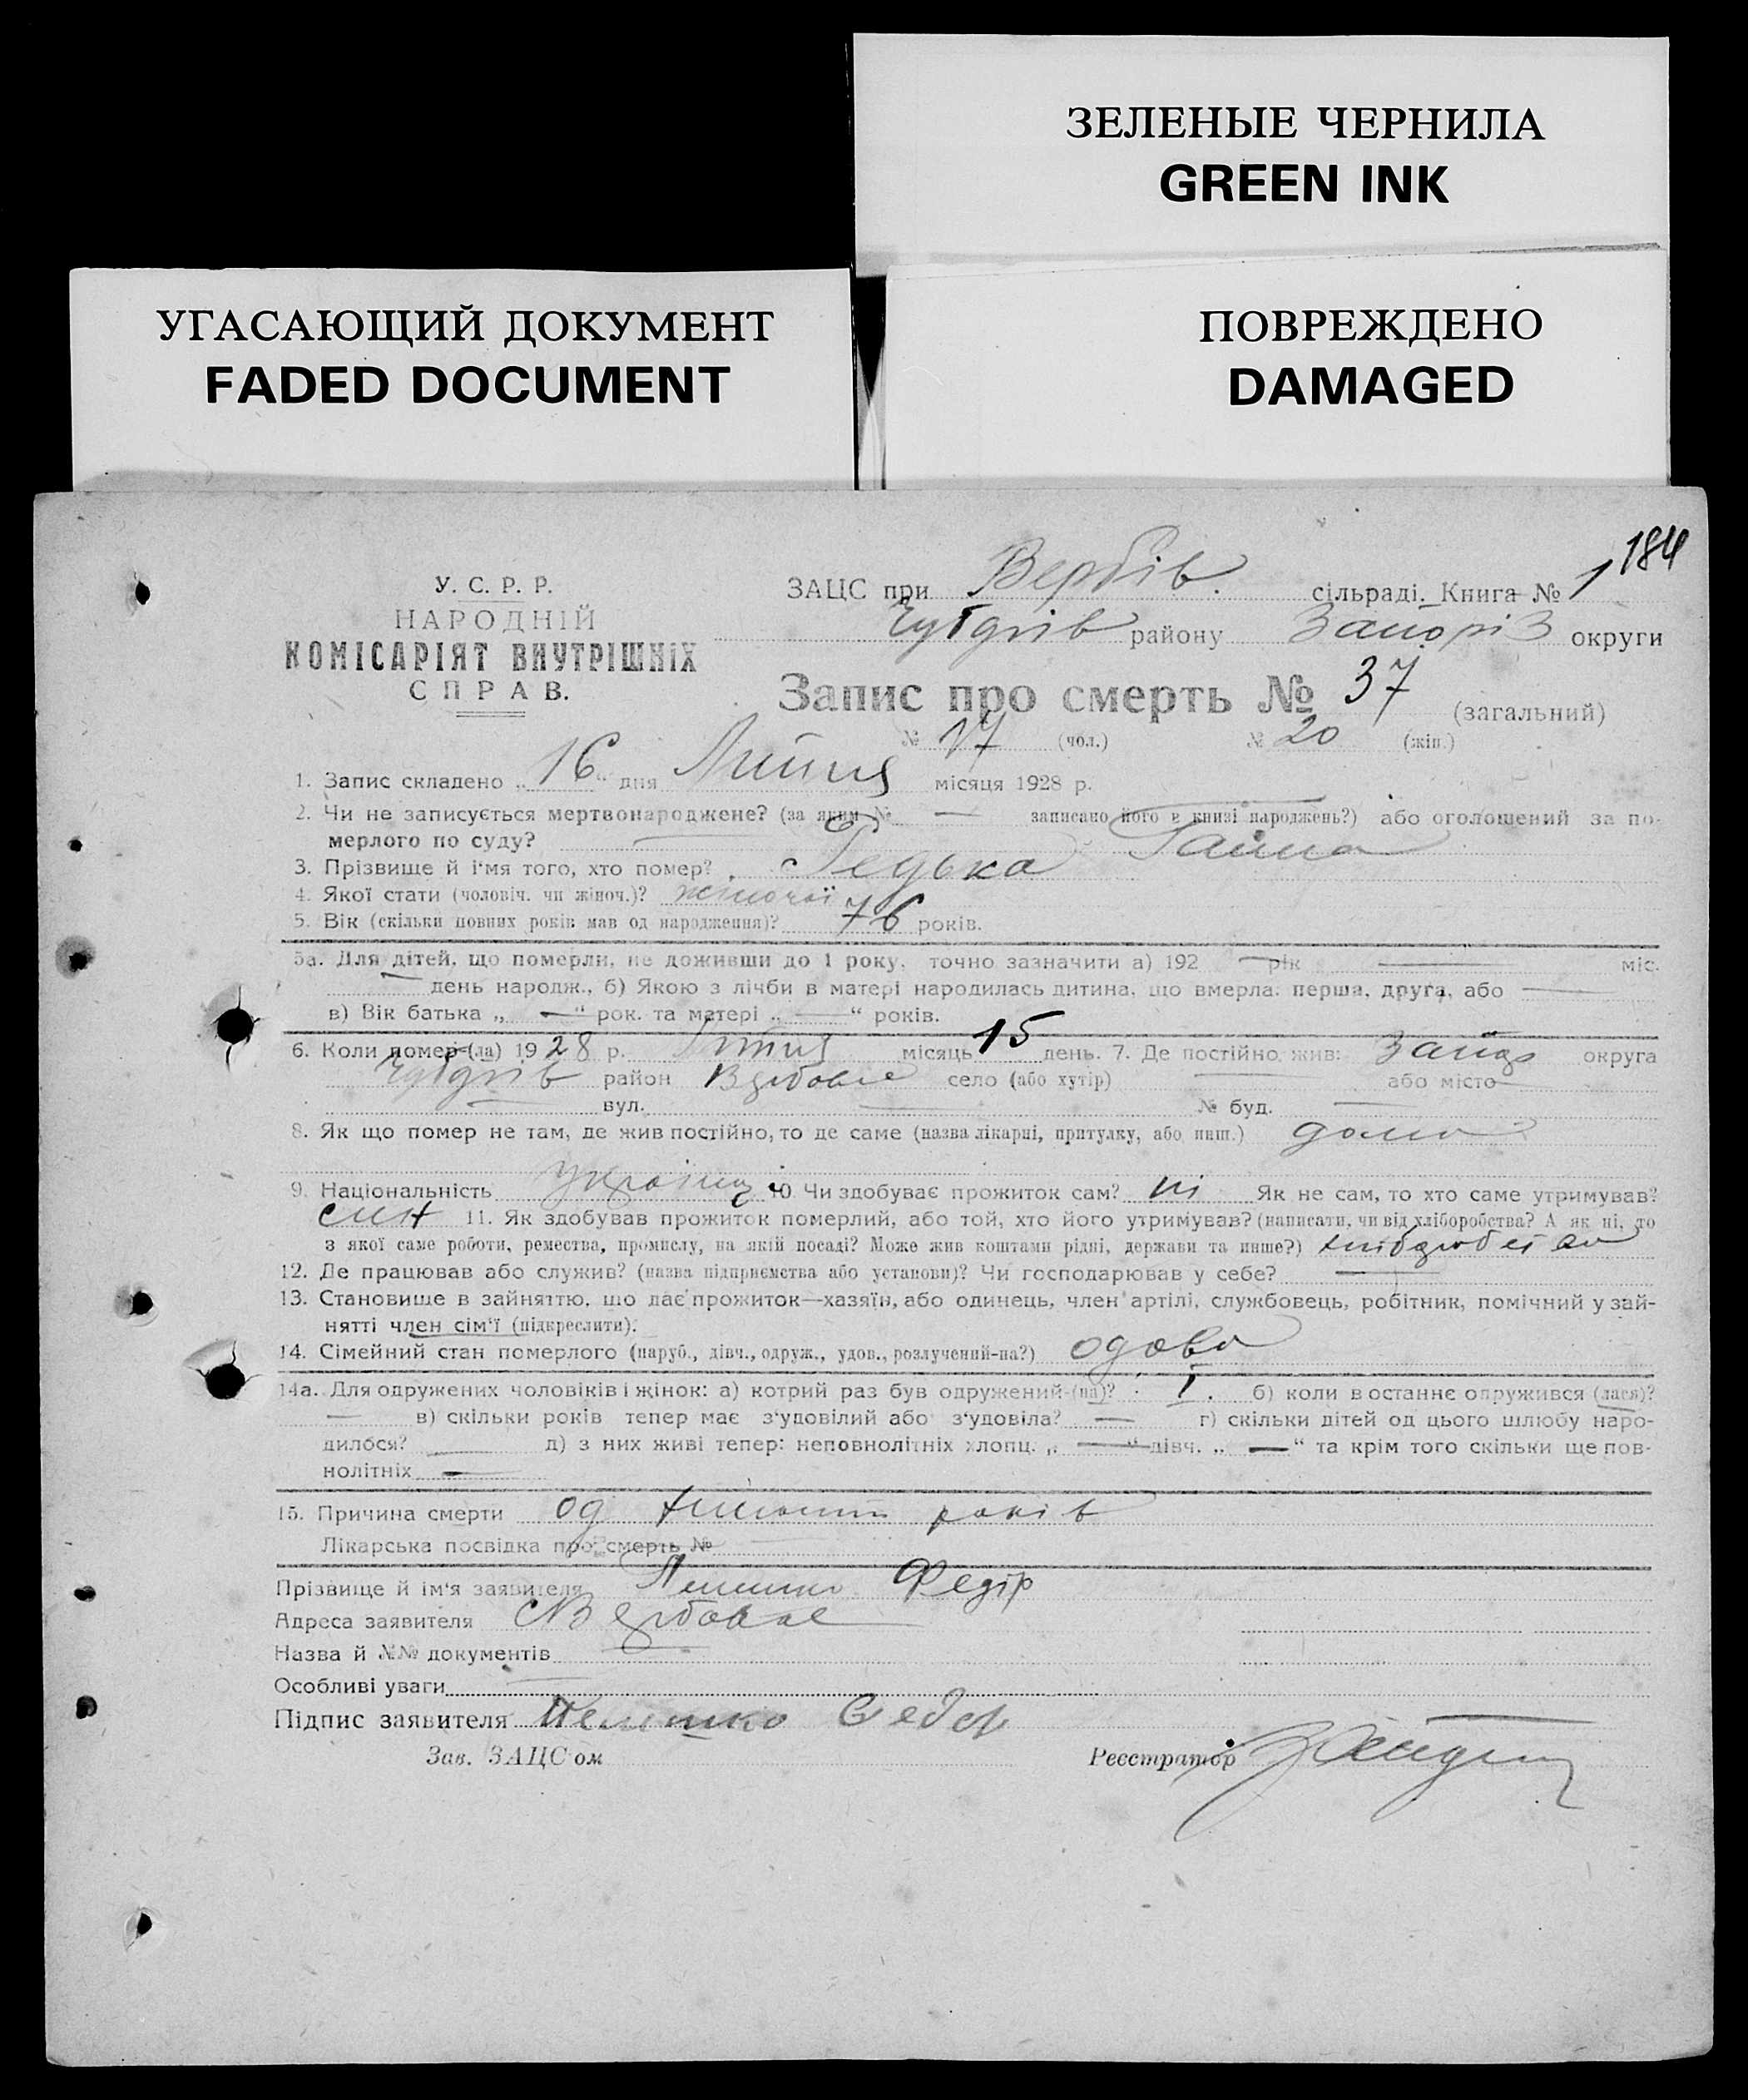 ЗЕЛЕНЫЕ ЧЕРНИЛА
GREEN INK
УГАСАЮЩИЙ ДОКУМЕНТ
FADED DOCUMENT
ПОВРЕЖДЕНО
DAMAGED
184
У. С. Р. Р.
НАРОДНІЙ
КОМІСАРІЯТ ВНУТРІШНІХ
СПРАВ.
ЗАЦС при Вербів. сільраді. Книга № 1
району Запоріз округи
Запис про смерть № 37 (загальний)
№ 17 (чол.) № 20 (жін.)
1. Запис складено „ 16 “ дня Липня місяця 1928 р.
2. Чи не записується мертвонароджене? (за яким № — записано його в книзі народжень?) або оголошений за по-
мерлого по суду? —
3. Прізвище й і'мя того, хто помер? Редька Ганна
4. Якої стати (чоловіч. чи жіноч.)? жіночої
5. Вік (скільки повних років мав од народження)? 76 років.
5а. Для дітей, що померли, не доживши до 1 року, точно зазначити а) 192 — рік — міс.
— день народж., б) Якою з лічби в матері народилась дитина, що вмерла: перша, друга, або —
в) Вік батька „ — “ рок. та матері „ — “ років.
6. Коли помер (ла) 1928 р. Липня місяць 15 день. 7. Де постійно жив: округа
район Вербове село (або хутір) — або місто
— вул. — № буд. —
8. Як що помер не там, де жив постійно, то де саме (назва лікарні, притулку, або инш.) дома
9. Національність 10. Чи здобуває прожиток сам? ні Як не сам, то хто саме утримував?
син 11. Як здобував прожиток померлий, або той, хто його утримував? (написати, чи від хліборобства? А як ні, то
з якої саме роботи, ремества, промислу, на якій посаді? Може жив коштами рідні, держави та инше?)
12. Де працював або служив? (назва підприємства або установи)? Чи господарював у себе? —
13. Становище в зайняттю, що дає прожиток—хазяїн, або одинець, член артілі, службовець, робітник, помічний у зай-
нятті член сім'ї (підкреслити).
14. Сімейний стан померлого (паруб., дівч., одруж., удов., розлучений-на?) одова
14а. Для одружених чоловіків і жінок: а) котрий раз був одружений-(на)? I. б) коли востаннє одружився (лася)?
— в) скільки років тепер має з'удовілий або з'удовіла? — г) скільки дітей од цього шлюбу наро-
дилося? — д) з них живі тепер: неповнолітніх хлопц. „ — “ дівч. „ — “ та крім того скільки ще пов-
нолітніх —
15. Причина смерти од років
Лікарська посвідка про смерть №
Прізвище й ім'я заявителя Федір
Адреса заявителя с Вербове
Назва й №№ документів —
Особливі уваги —
Підпис заявителя
Зав. ЗАЦС'ом Реєстратор